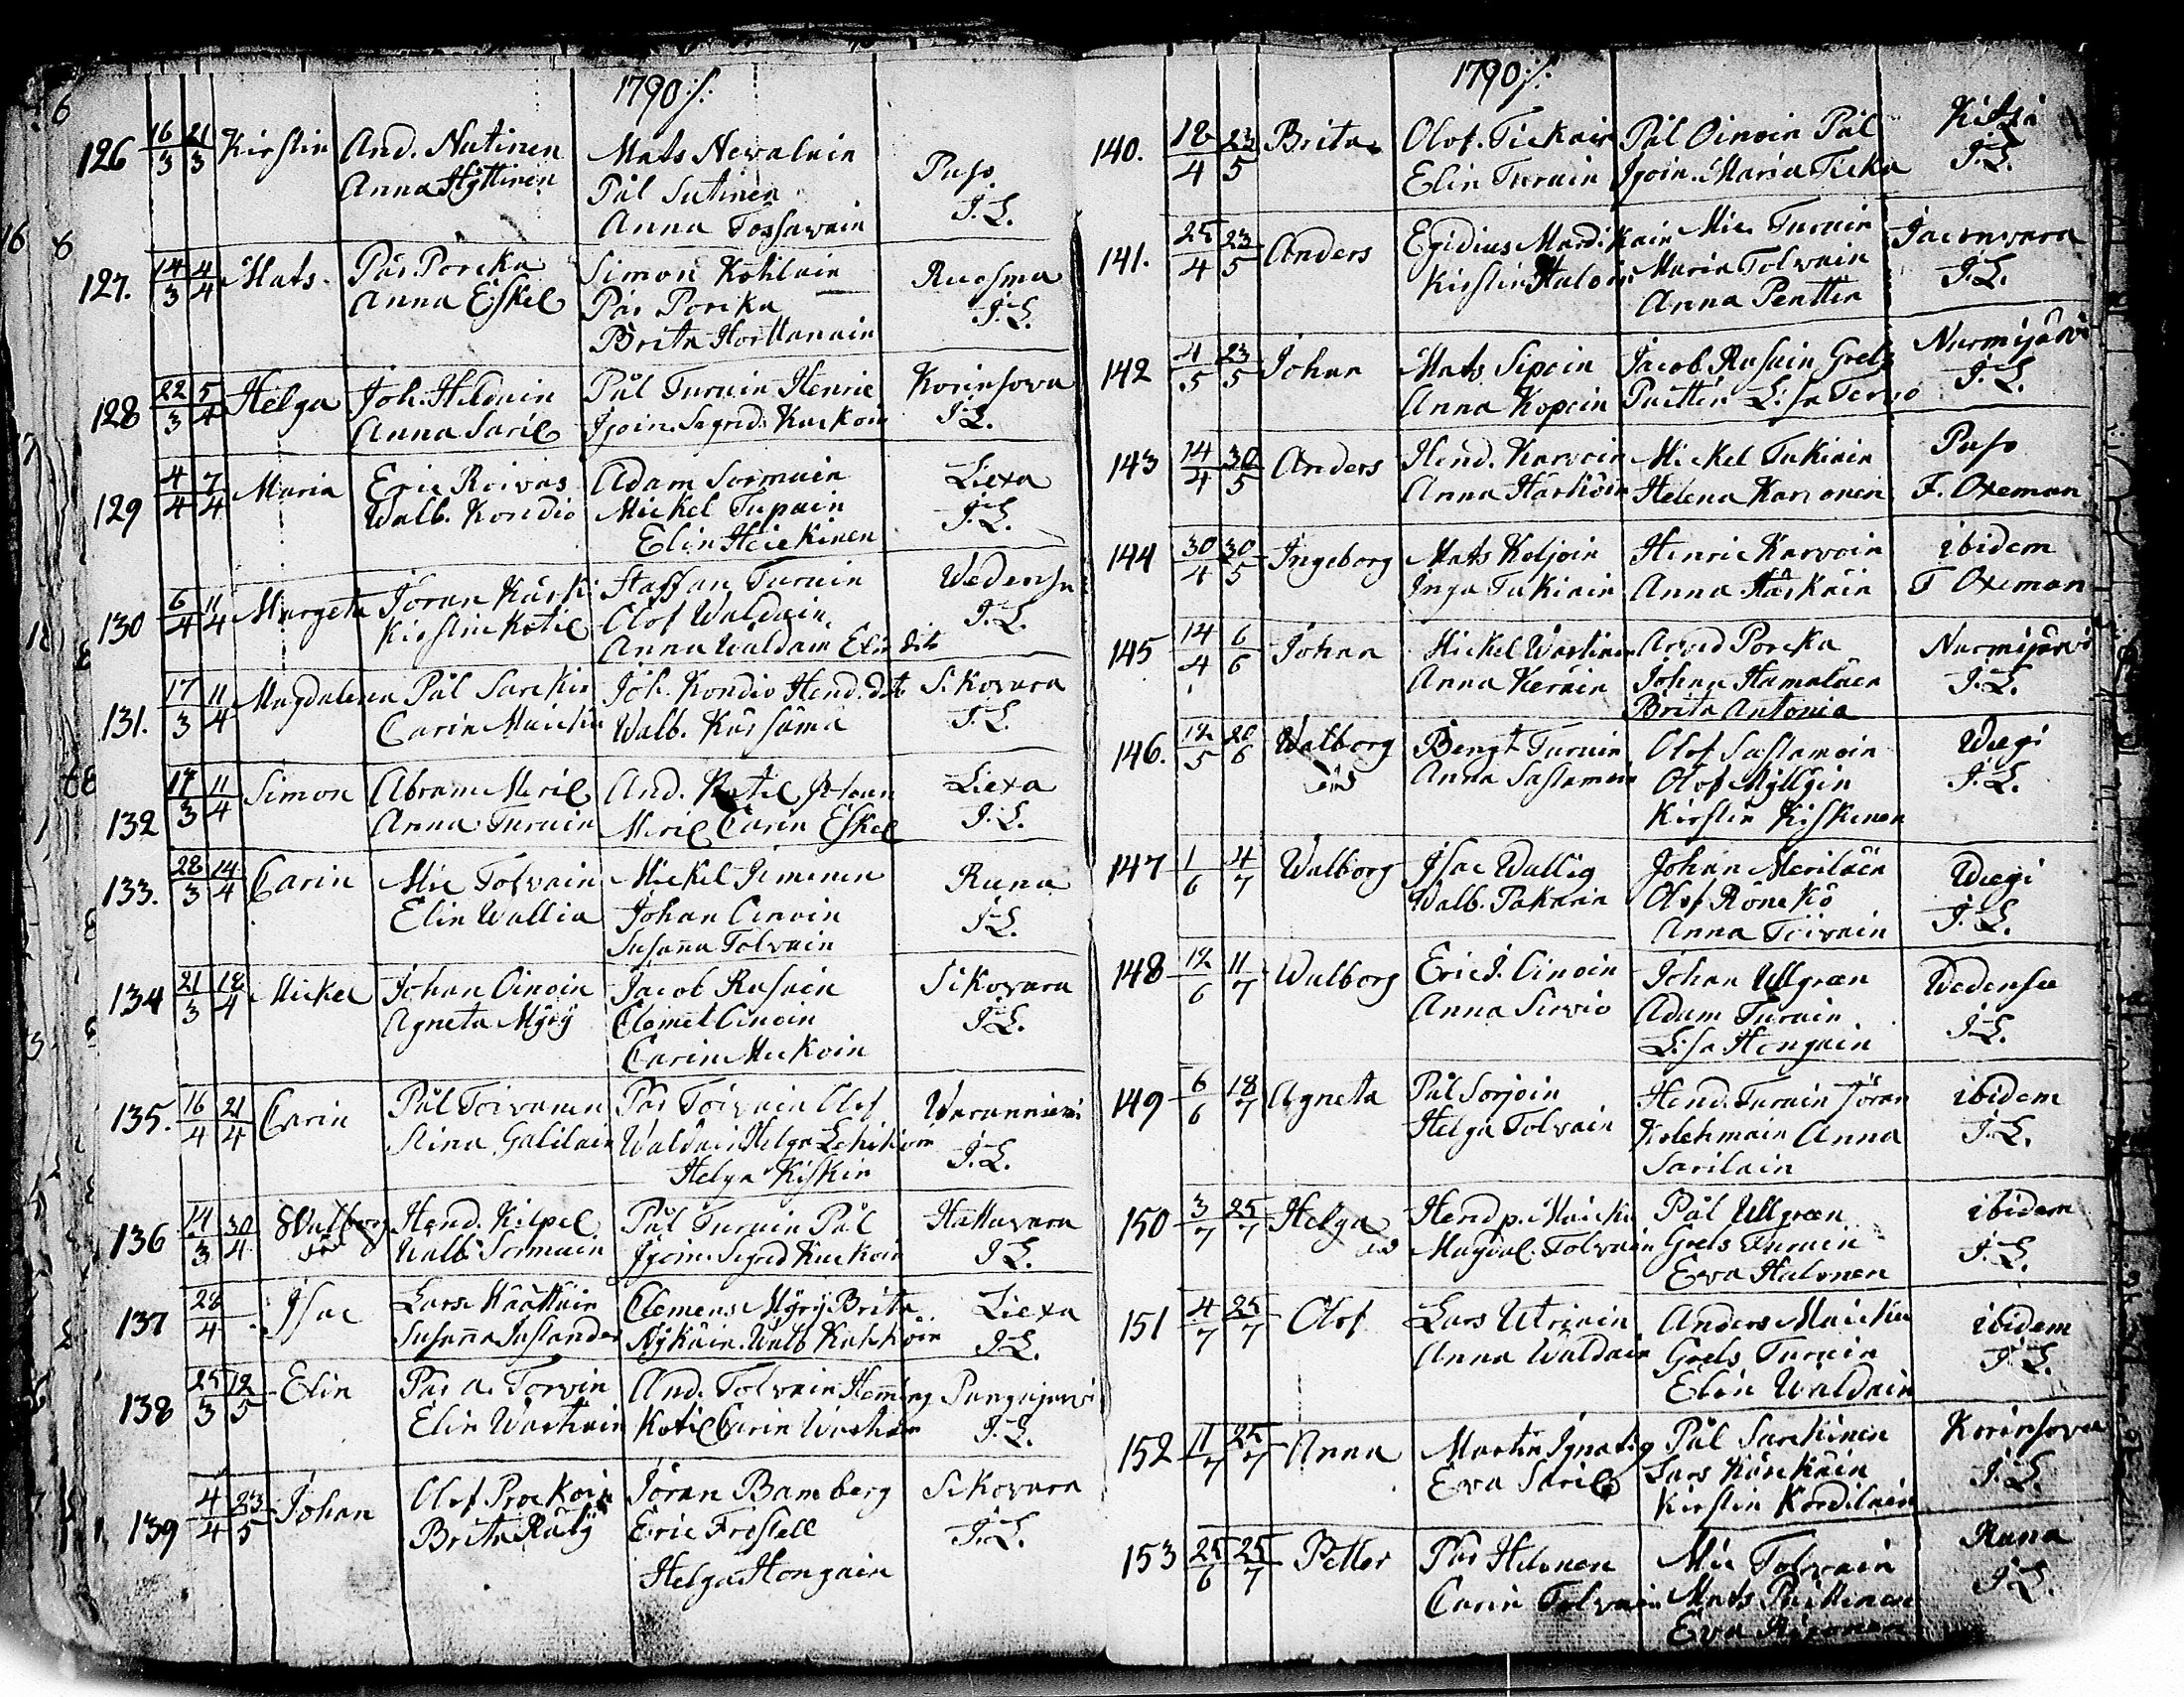 1790:/:
126 16/3 21/3 Kirstin And. Nutinen Mats Nevalain Puso
Anna Hyttinen Pål Sutinen J.L.
Anna Tossavain
127. 14/3 4/4 Mats Pår Porcka Simon Kohlain Ruosma
Anna Eskel Pår Porcka J.L.
Brita Horttanain
128 22/3 5/4 Helga Joh. Hilduin Pål Turuin Henric Korinsova
Anna Saril Jjoin. Sigrid Kuckoin J.L.
129 4/4 7/4 Maria Eric Roivas Adam Sormuin Liexa
Walb. Kondio Mickel Tupain J.L.
Elin Heickinen
130 6/4 11/4 Margeta Jöran Kurki Staffan Turuin Wedensu
Kirstin Kotil Olof Waldain J.L.
Anna Waldain Elin dito
131. 17/3 11/4 Magdalena Pål Sarckin Joh. Kondio Hend. dito Sikovara
Carin Maichin Walb. Kårsämä J.L.
132 17/3 11/4 Simon Abram Meril And. Kotil Johan Liexa
Anna Turuin Meril Carin Eskel J.L.
133. 28/3 14/4 Carin Mic Tolvain Mickel Jimenen Runa
Elin Wallia Johan Oinoin J.L.
Susanna Tolvain
134 21/3 18/4 Mickel Johan Oinoin Jacob Rusain Sikovara
Agneta Myry Clemet Oinoin J.L.
Carin Muckoin
135. 16/4 21/4 Carin Pål Toivanen Pår Toivain Olof Waranniemi
Stina Galilain Waldain Helga Lehikoin J.L.
Helga Kiskin
136 14/3 30/4 Walborg Hend. Kilpel Pål Turuin Pål Hattuvara
Walb Sormuin Jjoin. Sigrid Kuckoin J.L.
137 28/4 Isac Lars Määttain Clemens Myry Brita Liexa
Susanna Jaslander Nykäin. Walb Kuhkoin J.L.
138 25/3 12/5 Elin Pår a. Torvin And. Tolvain Hemming Pangajarvi
Elin Wartiain Kotil Carin Wartiain J.L.
139 4/4 23/5 Johan Olof Prockoin Jöran Bamberg Sikovara
Brita Räty Eric Fristell J.L.
Helga Hongain
1790:/:
140. 18/4 23/5 Brita Olof. Tickain Pål Oinoin Pål Kitsi
Elin Turuin Jjoin. Maria Ticka J.L.
141. 25/4 23/5 Anders Egidius Mardikain Mic Turuin Jaernvara
Kirstin Haloin Maria Tolvain J.L.
Anna Penttin
142 4/5 23/5 Johan Mats Sipoin Jacob Rusain Grels Nurmijärvi
Anna Kopoin Puittin Lisa Tervo J.L.
143 14/4 30/5 Anders Hend. Karvoin Mickel Tukiain Puso
Anna Harkoin Helena Karvonen F. Oxeman
144 30/4 30/5 Ingeborg Mats Keljoin Henric Karvoin ibidem
Inga Tukiain Anna Härkoin F Oxeman
145 14/4 6/6 Johan Mickel Wartinen Arvid Porcka Nurmijärvi
Anna Keräin Johan Hamaläin J.L.
Brita Antonia
146. 12/5 20/6 Walborg Bengt Turuin Olof Sustamoin Wiegi
Anna Sastamoin Olof Myllyin J.L.
Kirstin Kiskinen
147 1/6 4/7 Walborg Isac Wallig Johan Meriläin Wiegi
Walb. Pakarin Olof Röneckö J.L.
Anna Toivain
148 12/6 11/7 Walborg Eric J. Oinoin Johan Ullgræn Wedensu
Anna Sirviö Adam Turuin J.L.
Lisa Hongain
149 6/6 18/7 Agneta Pål Sorjoin Hend. Turuin Jöran ibidem
Helga Tolvain Kolehmain Anna J.L.
Sarilain
150 3/7 25/7 Helga Hend p. Maichin Pål Ullgræn ibidem
Magdal. Tolvain Grels Turuin J.L.
Eva Halonen
151 4/7 25/7 Olof Lars Utriain Anders Maichin ibidem
Anna Waldain Grels Turuin J.L.
Elin Waldain
152 11/7 25/7 Anna Martin Ignatig Pål Sarckinen Korinsova
Eva Saril Lars Kärckäin J.L.
Kirstin Kordilain
153 25/6 25/7 Petter Pår Halonen Mic Tolvain Runa
Carin Tolvain Mats Puittinen J.L.
Eva